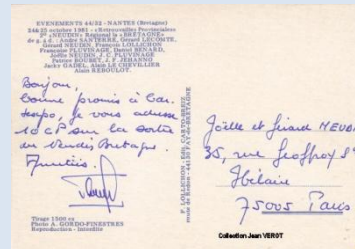 EVENEMENTS 44/22 - NANTES (Bretagne)
24&25 octobre 1981 : «Retrouvailles Provinciales»
1er «NEUDIN» Régional la «BRETAGNE»
de g. à d. : André SANTERRE, Gérard LECOMTE,
Gérard NEUDIN, François LOLLICHON
Françoise PLUVINAGE, Daniel BENARD,
Joëlle NEUDIN, J.C. PLUVINAGE
Patrice BOUBET, J.F. JEHANNO
Jacky GADEL, Alain LE CHEVILLIER
Alain REBOULOT.
Bonjour,
comme promis à
temps, je vous adresse
10 CP sur la sortie
du Neudin Bretagne.
Amitiés.
Tirage 1500 ex
Photo A. GORDO-FINESTRES
Reproduction - Interdite
F. LOLLICHON, CARTO-BREIZ
route de Redon - 44130 FAY-de-BRETAGNE
Joëlle et Gérard NEUDIN
35, rue Geoffroy St
Hilaire
75005 Paris
Collection Jean VEROT